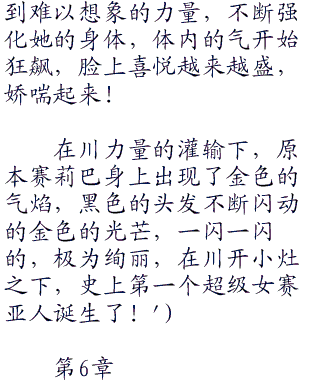 到难以想象的力量，不断强
化她的身体，体内的气开始
狂飙，脸上喜悦越来越盛，
娇喘起来！
在川力量的灌输下，原
本赛莉巴身上出现了金色的
气焰，黑色的头发不断闪动
的金色的光芒，一闪一闪
的，极为绚丽，在川开小灶
之下，史上第一个超级女赛
亚人诞生了！')
第6章